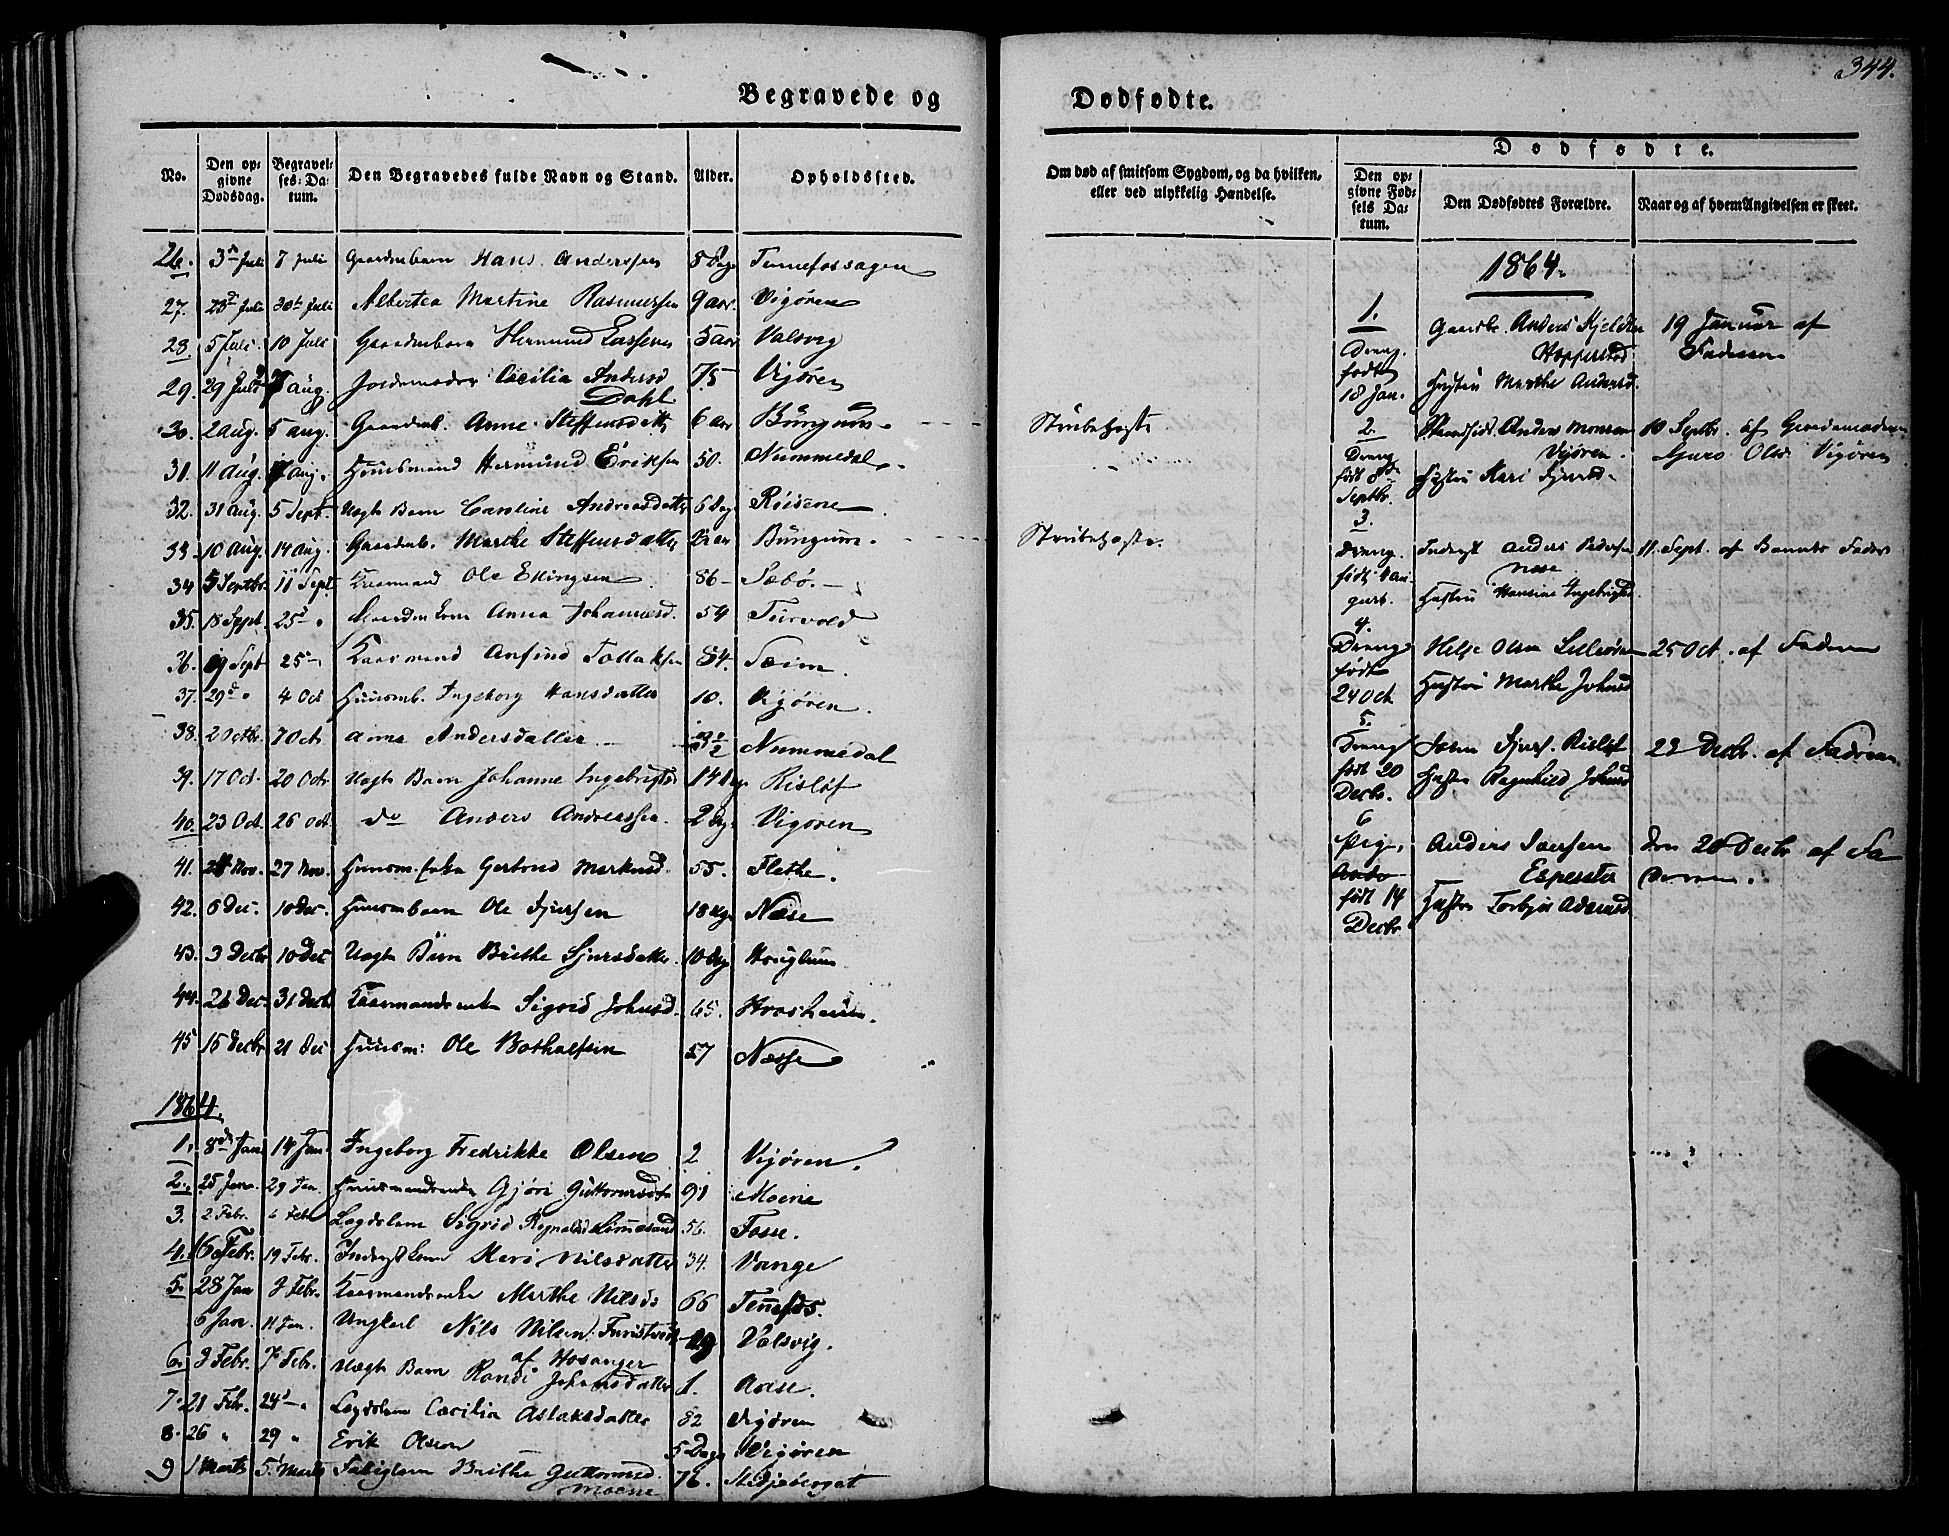 344.
Begravede og Dødfødte.
No. Den opgivne Dødsdag. Begravelses-Datum. Den Begravedes fulde Navn og Stand. Alder. Opholdssted.
Om død af smitsom Sygdom, og da hvilken, eller ved ulykkelig Hændelse.
Dødfødte.
Den opgivne Fødsels Datum. Den Dødfødtes Forældre. Naar og af hvem Angivelsen er skeet.
26. 3 Juli 7 Juli Hans Anderssen 5 Dage Tennefossagen
27. 23 Juli 30 Juli Martine Rasmussen 9 aar. Vigøren
28. 5 Juli 10 Juli Gaardmbarn Hermund Lassesen 5 aar Valsvig
29. 29 Juli aug. Jordemoder Cæcilia Andersd 75 Vigøren
Dahl
30. 2 aug. 5 aug. Gaardmb. Anne Steffensdatt 6 aar Bungum Strubehoste
31. 11 Aug. Aug. Huusmand Hermund Eriksen 50. Nummedal
32. 31 Aug. 5 Sept. Uægte Barn Caroline Andreasdatter 6 Dag Røisene
33. 10 Aug. 14 Aug. Gaardmb. Marthe Steffensdatter 2 aar Bungum Strubehoste.
34 5 Septbr. 11 Sept Kaarmand Ole Ellingsen 86 Sæbø.
35. 18 Sept. 25 " Gaardmkone Anna Johannesd. 54 Turvold
36. 19 Sept 25 Kaarmand Anfind Tollaksen 84. Seim.
37. 29 " 4 Oct Huusmb. Ingeborg Hansdatter 10. Vigøren.
38. 2 Octbr. 7 Oct Anna Andersdatter Nummedal
39. 17 Oct. 20 Oct Uægte Barn Johanne Ingebrigtsd 14 Dage Risløf
40. 23 Oct. 26 Oct. do Anders Andreassen 2 Vigøren
41. 24 Nov. 27 Nov. Gertrud Markusd 55. Flethe.
42. 6 Dec. 10 Dec. Huusmbarn Ole Sjursen 18 Næse
43. 3 Decbr 10 Dec Uægte Barn Brithe Sjursdatter 10 Dag Houglum
44. 26 Dec. 31 Decb. Kaarmandsenke Sigrid Johnsd. 65. Hrosheim.
45 15 Decbr 21 Dec Huusm: Ole Bothalfsen 57 Næsse
1864.
1. 8 Jan 14 Jan. Ingeborg Fredrikke Olsen 2 Vigøren.
2. 25 Jan. 29 Jan. Huusmandsenke Gjøri Guttormsdt 91 Moene
3. 2 Febr. 6 Febr Lægdslem Sigrid 56. Fosse.
4. 16 Febr. 19 Febr. Inderstkone Kari Nilsdatter 34. Vange
5. 28 Jan 3 Febr. Kaarmandsenke Marthe Nilsd 66 Tenefos.
6 Jan. 11 Jan. Ungkarl Nils Nilsen 29 Valsvig.
af Hosanger
6. 3 Febr. 7 Febr. Uægte Barn Randi Johansdatter 1. Aase.
7. 21 Febr. 24 Lægdslem Cæcilia Aslaksdatter 82 Vigøren
8. 26 " 29 " Erik Olsen 5 Dage Vigøren
9 1 Marts 5 Marts Brithe Guttormsd. 76.
Moene
1864.
1.
Dreng.
født
18 Jan.
Gaardbr. Anders Kjelsen
Hopperstad
Hustru Marthe Andersd.
19 Januar af
Faderen
2.
Dreng
født 8de
Septbr.
Strandsid. Anders Monsen
Vigøren.
Hustru Kari Sjursd.
10 Septbr. af Gjordemoderen
Guro Olsd. Vigøren
3.
Dreng.
født 4 au
gust.
Inderst Anders Pedersen
Næse
Hustru Hansine Ingebrigtsd.
11. Sept. af Barnets Fader
4.
Dreng
født
24 Oct
Helje Olsen Lilleøren
Hustru Marthe Johnsd
25 Oct. af Faderen
5.
Dreng
født 20
Decbr.
John Sjurs. Risløf
Hustru Ragnhild Johnsd
22 Decbr. af Faderen.
6
Pige,
født 14
Decbr
Anders Iversen
Espeseta
Hustru Torbjør Adamsd
den 20 Decbr af Fa
deren.